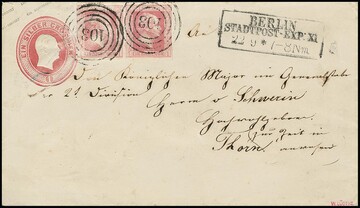 EIN SILBER GROSCHEN
103
103
BERLIN
STADTPOST-EXP. XI
22 9 * 7-8 Nm
An
den Königlichen Major im Generalstabe
der 2t Division Herrn v. Schwerin
Hochwohlgeboren
zur Zeit in
Thorn anwesend